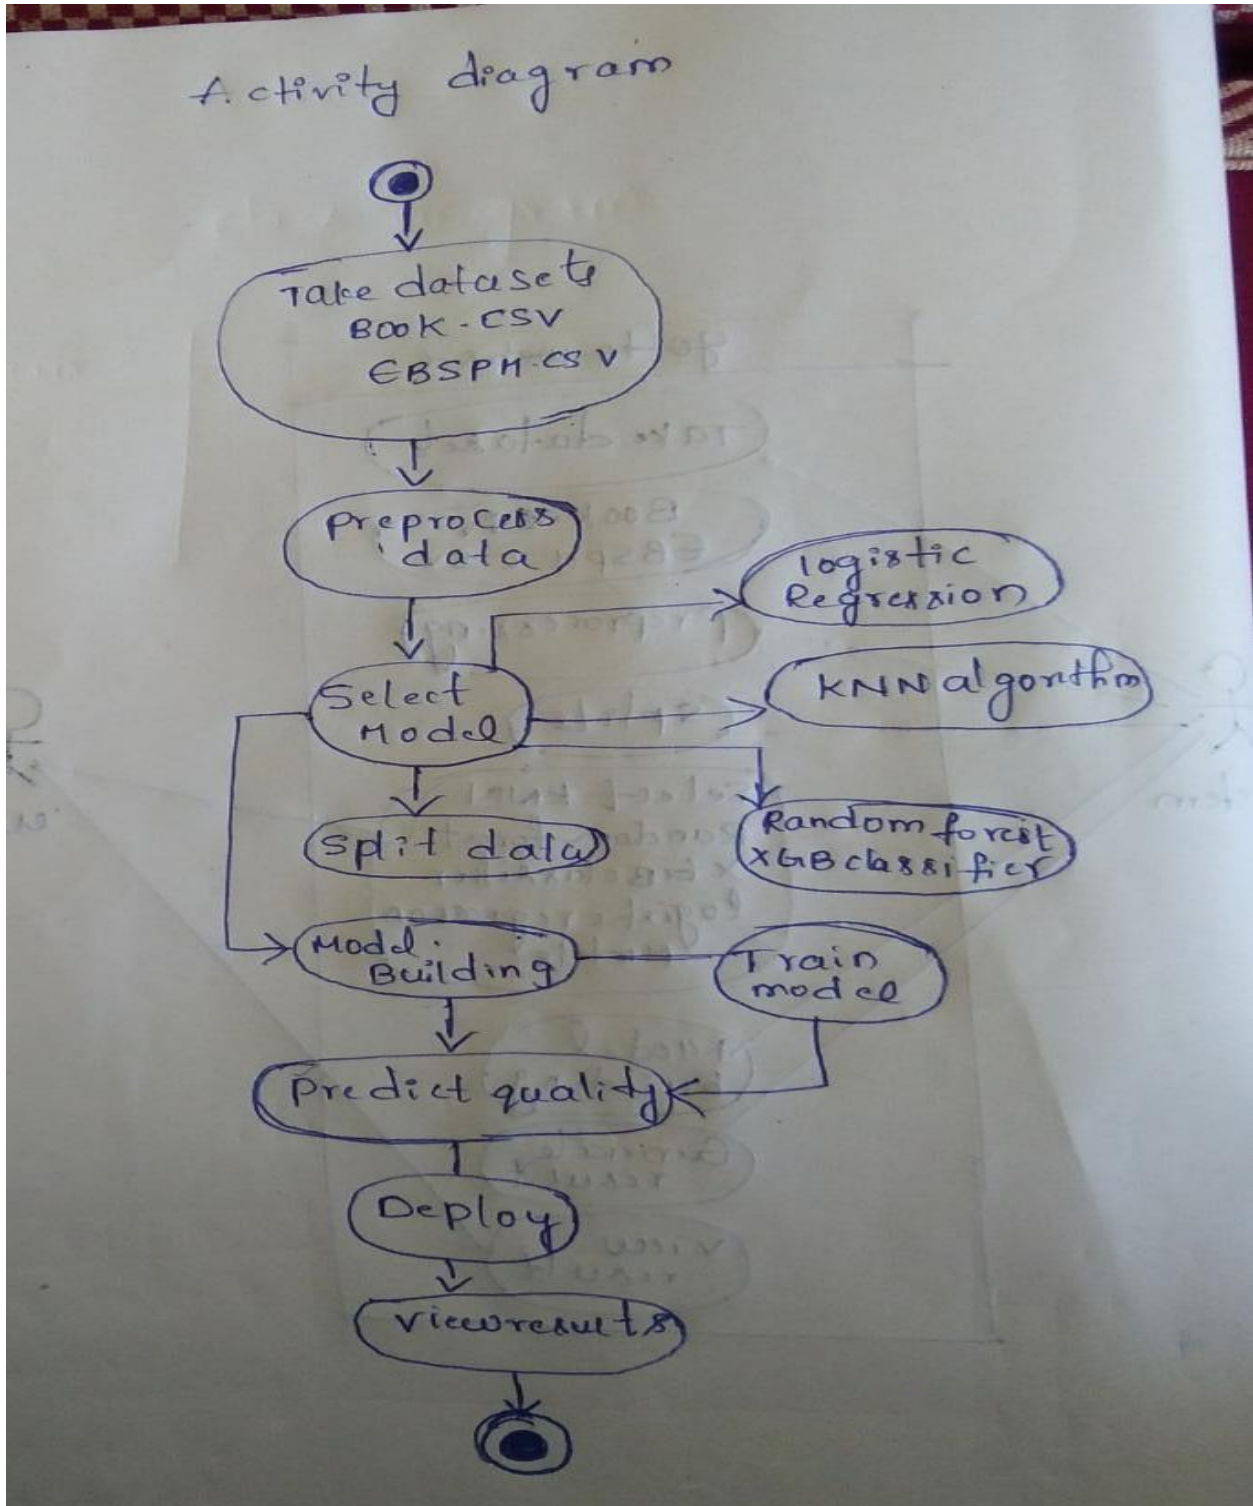 Activity diagram
Take datasets
BOOK.CSV
EBSPM.CSV
preprocess
data
logistic
Regression
Select
Model
KNN algorithm
split data
Random forest
XGBclassifier
Model
Building
Train
model
predict quality
Deploy
viewresults